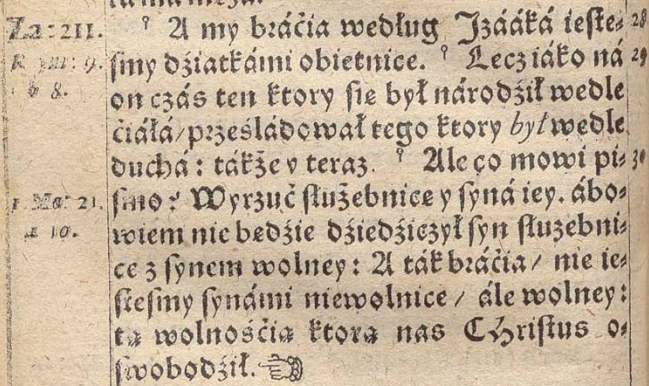 Za: 211. ° A my bráćia według Izááká ieste= 28
R ym: 9. smy dźiatkámi obietnice. ° Lecz iáko ná 29
b 8. on czás ten ktory sie był národźił wedle
ćiáłá/ prześládował tego ktory był wedle
duchá: tákże y teraz. ° Ale co mowi pi= 30
1. Mo: 21. smo? Wyrzuć służebnicę y syná iey. ábo=
a 10. wiem nie będźie dźiedźiczył syn służebni=
ce z synem wolney: A ták bráćia/ nie ie=
stesmy synámi niewolnice/ ále wolney:
tą wolnośćią ktorą nas CHristus o=
swobodźił. ☜